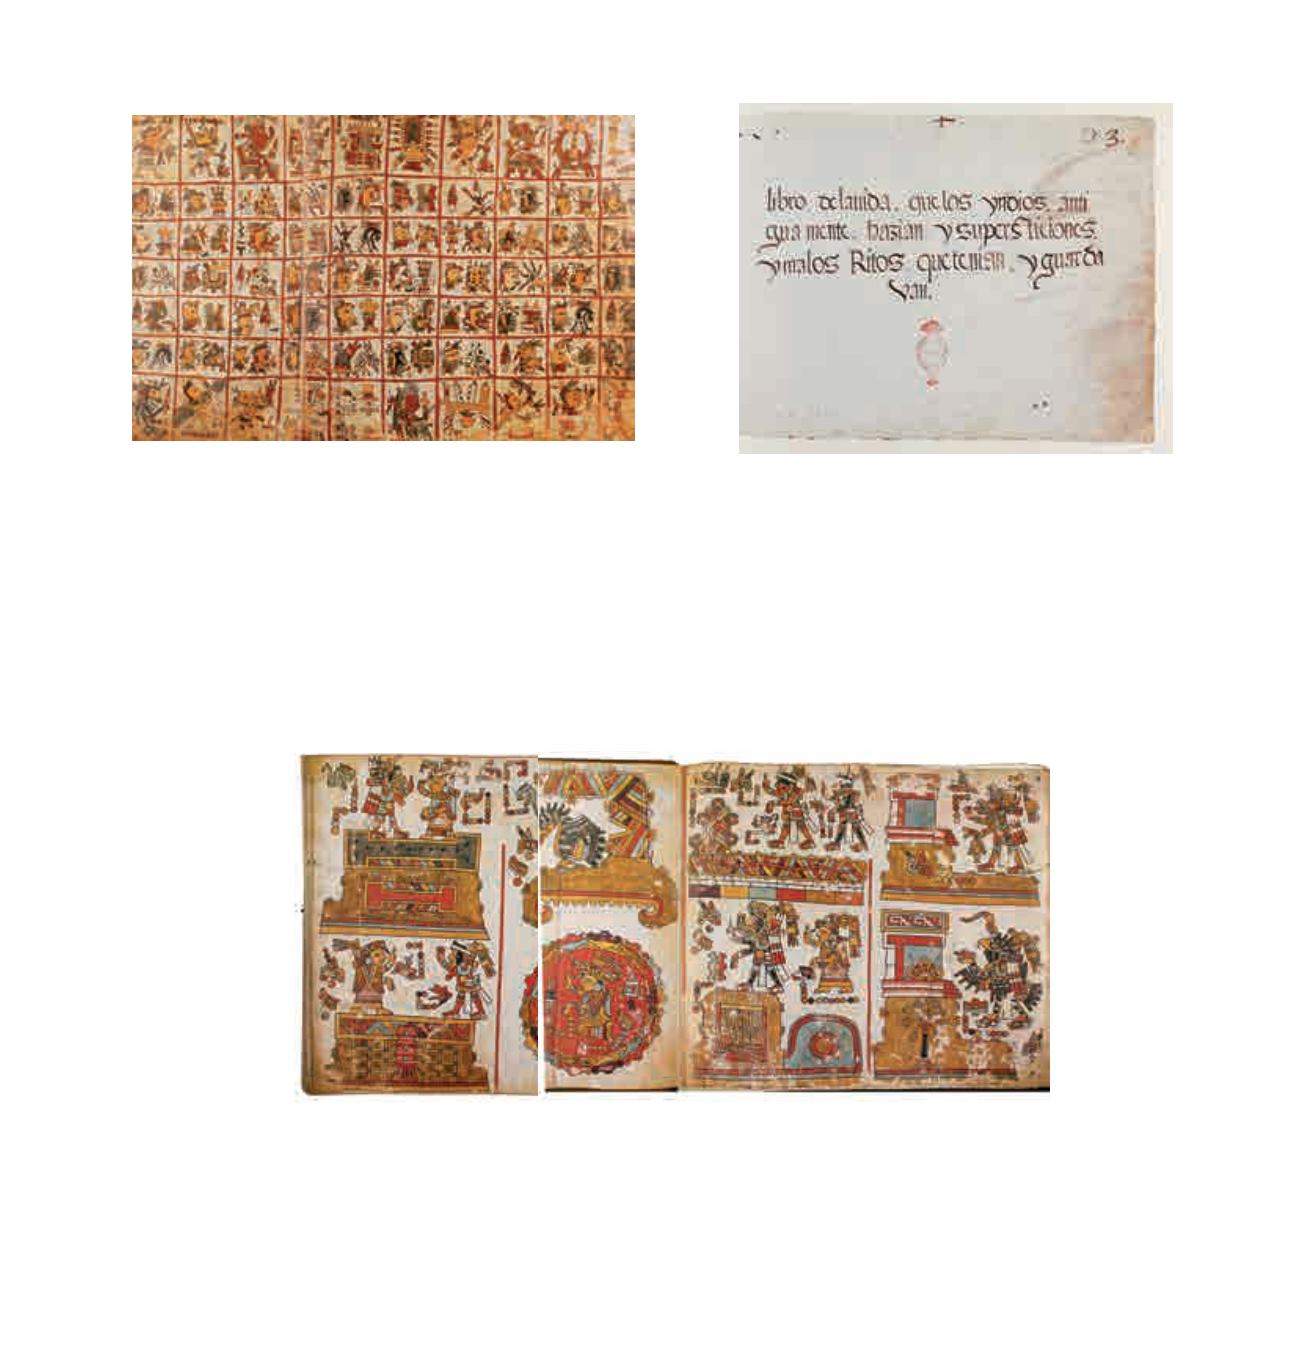 3.
libro dela uida. que los yndios anti
gua mente. hazian y supersticiones.
y malos Ritos que tenian. y guarda
van.